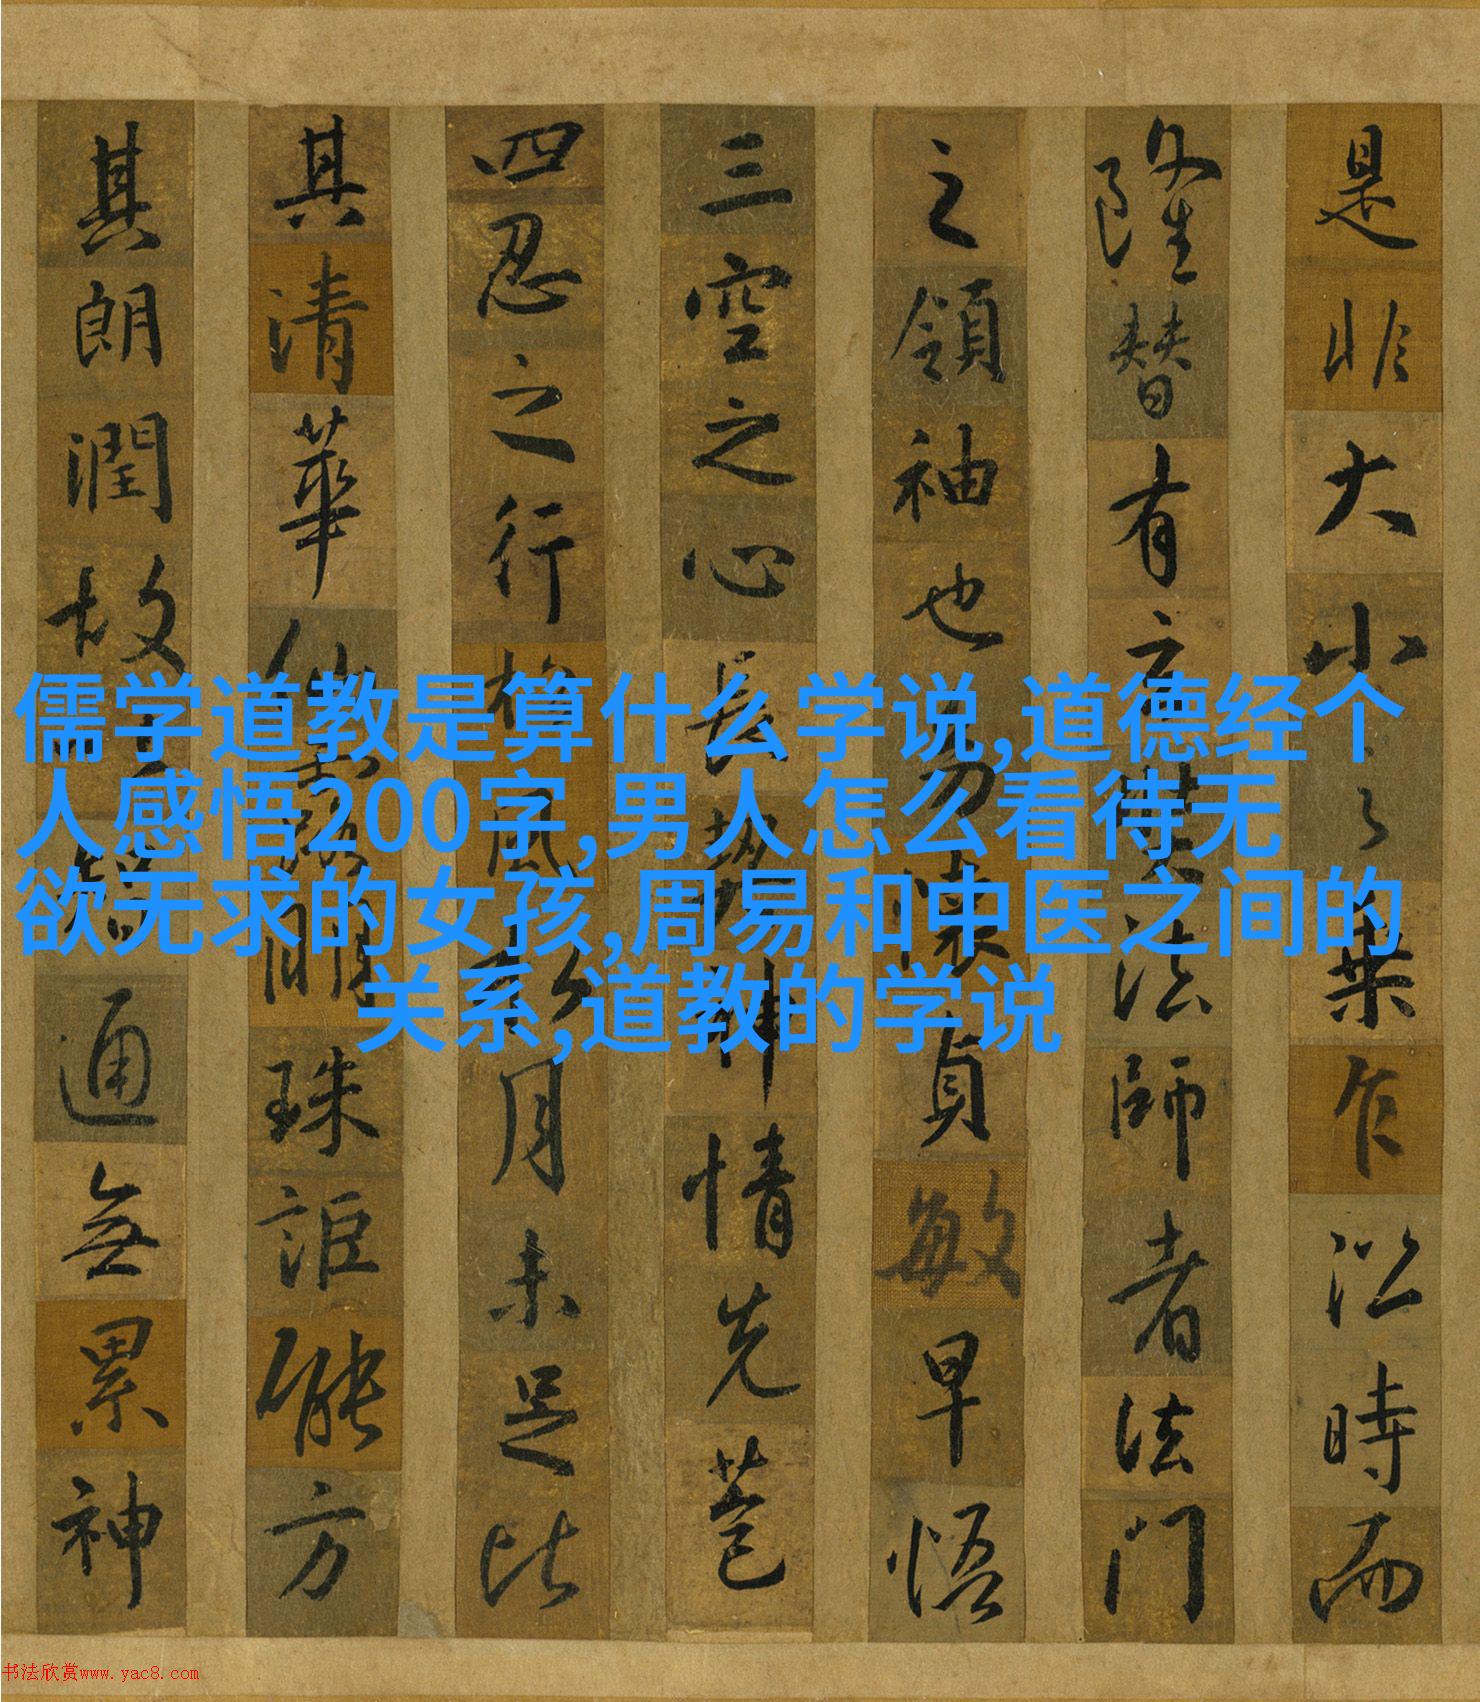 是非大小之乘乍沿時而
隆替有玄奘法師者法門
之領袖也幼懷貞敏早悟
三空之心長契神情先苞
四忍之行松風水月未足比
其清華仙露明珠詎能方
其朗潤故以智通無累神
儒学道教是算什么学说,道德经个
人感悟200字,男人怎么看待无
欲无求的女孩,周易和中医之间的
关系,道教的学说
书法欣赏www.yac8.com